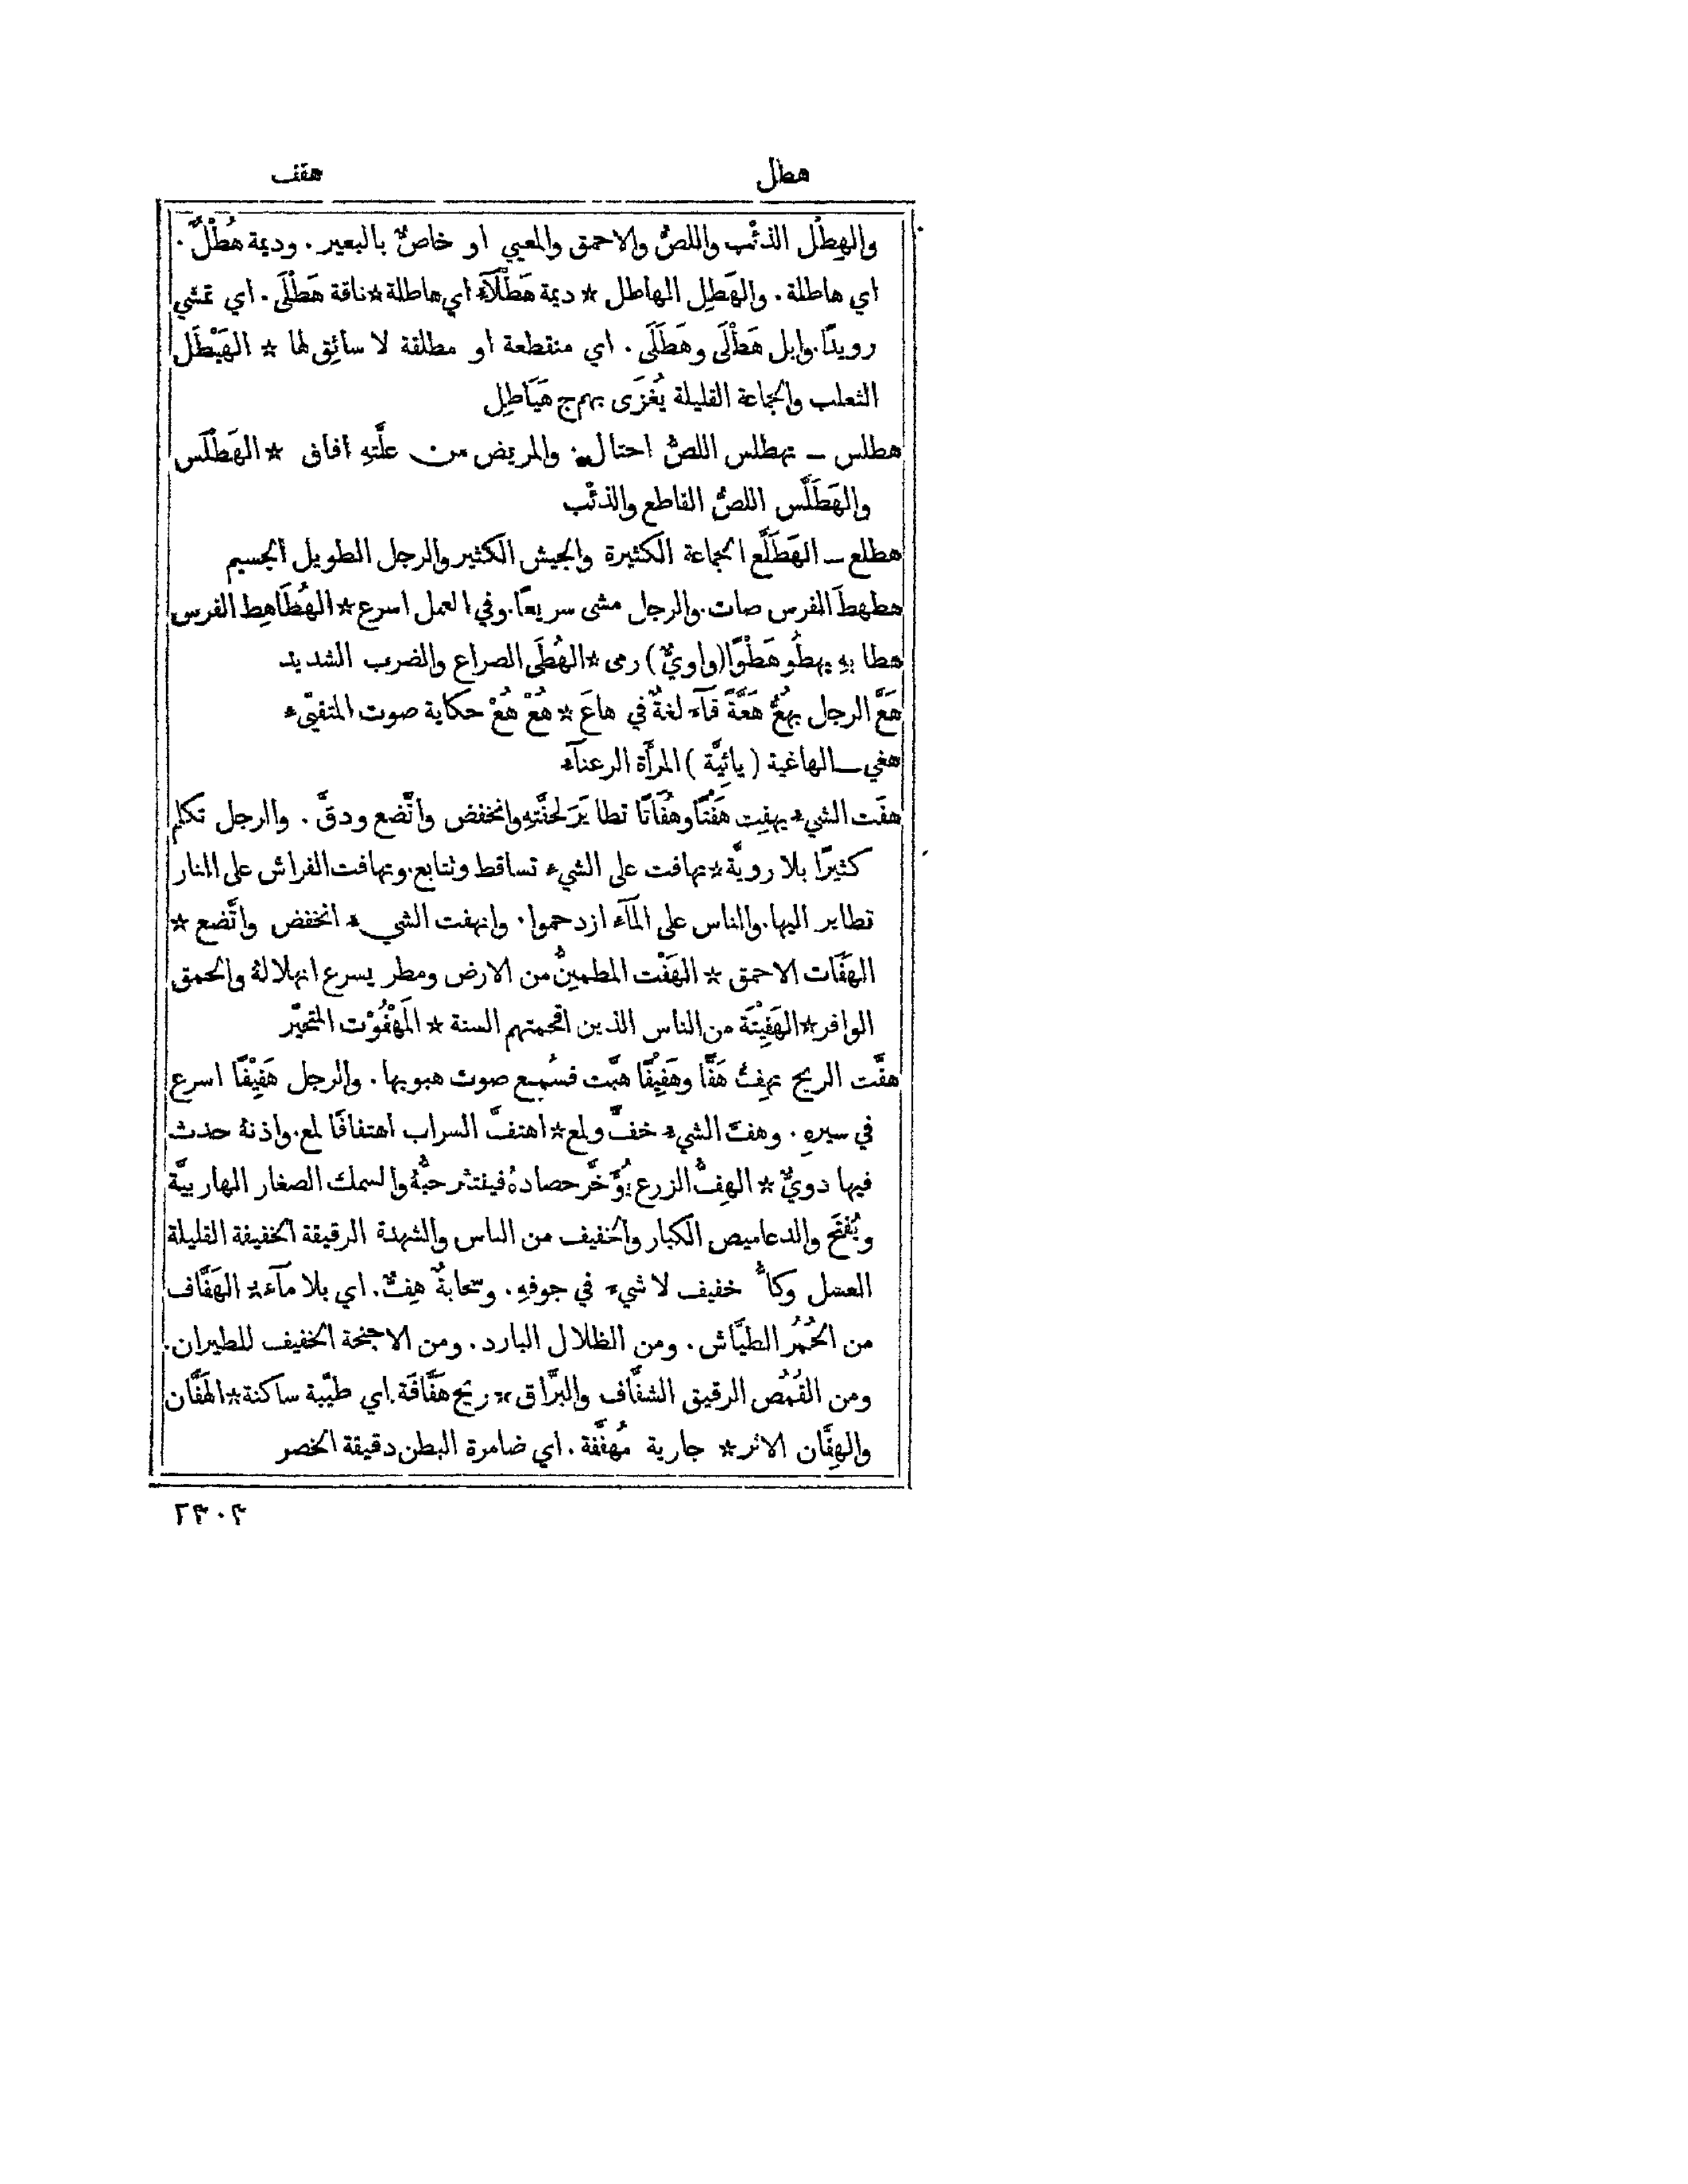 هطل هفف
والهِطْل الذئْب واللصُّ والاحمق والمعيي او خاصٌّ بالبعير. وديمة هُطْلٌ.
اي هاطلة. والهَطِل الهاطل * ديمة هَطْلَاۤء اي هاطلة * ناقة هَطْلَى. اي تمشي
رويدًا. وابل هَطْلَى وهَطَلَى. اي منقطعة او مطلقة لا سائِق لها * الهَيْطَل
الثعلب والجماعة القليلة يُغزَى بهم ج هَيَاطِل
هطلس ــ تهطلس اللصُّ احتال. والمريض من علَّتهِ افاق * الهَطْلَس
والهَطَلَّس اللصُّ القاطع والذئْب
هطلع ــ الهَطَلَّع الجماعة الكثيرة والجيش الكثير والرجل الطويل الجسيم
هطهطَ الفرس صات. والرجل مشى سريعًا. وفي العمل اسرع * الهُطَاهِط الفرس
هطا بهِ يهطُو هَطْوًا (واويٌّ) رمى * الهُطَى الصراع والضرب الشديد
هَعَّ الرجل يهُعُّ هَعَّةً قاۤءَ لغةٌ في هاعَ * هُعْ هُعْ حكاية صوت المتقيّء
هغي ــ الهاغية (يائيَّة) المرأَة الرعناۤء
هفَت الشيءُ يهفِت هَفْتًا وهُفَاتًا تطايَرَ لخفَّتهِ وانخفض واتَّضع ودقَّ. والرجل تكلم
كثيرًا بلا رويَّة * تهافت على الشيء تساقط وتتابع. وتهافت الفراش على النار
تطاير اليها. والناس على الماۤءِ ازدحموا. وانهفت الشيء انخفض واتَّضع *
الهَفَات الاحمق * الهَفْت المطمئِنُّ من الارض ومطر يسرع انهلالهُ والحمق
الوافر * الهَفِيْتَة من الناس الذين اقحمتهم السنة * المَهْفُوْت المتحيّر
هفَّت الريح تهِفُّ هَفًّا وهَفِيْفًا هبَّت فسُمِع صوت هبوبها. والرجل هَفِيْفًا اسرع
في سيرهِ. وهفَّ الشيءُ خفَّ ولمع * اهتفَّ السراب اهتفافًا لمع. واذنهُ حدث
فيها دويٌّ * الهِفُّ الزرع يُؤَخَّر حصادهُ فينتثر حبُّهُ والسمك الصغار الهاربيَّة
ويُفتَح والدعاميص الكبار والخفيف من الناس والشهدة الرقيقة الخفيفة القليلة
العسل وكلُّ خفيف لا شيءَ في جوفهِ. وسحابةٌ هِفٌّ. اي بلا ماۤء * الهَفَّاف
من الحُمُر الطيَّاش. ومن الظلال البارد. ومن الاجنحة الخفيف للطيران.
ومن القُمُص الرقيق الشفَّاف والبرَّاق * ريح هَفَّافَة. اي طيّبة ساكنة * الهَفَّان
والهِفَّان الاثر * جارية مُهفَّفَة. اي ضامرة البطن دقيقة الخصر
٢٣٠٣